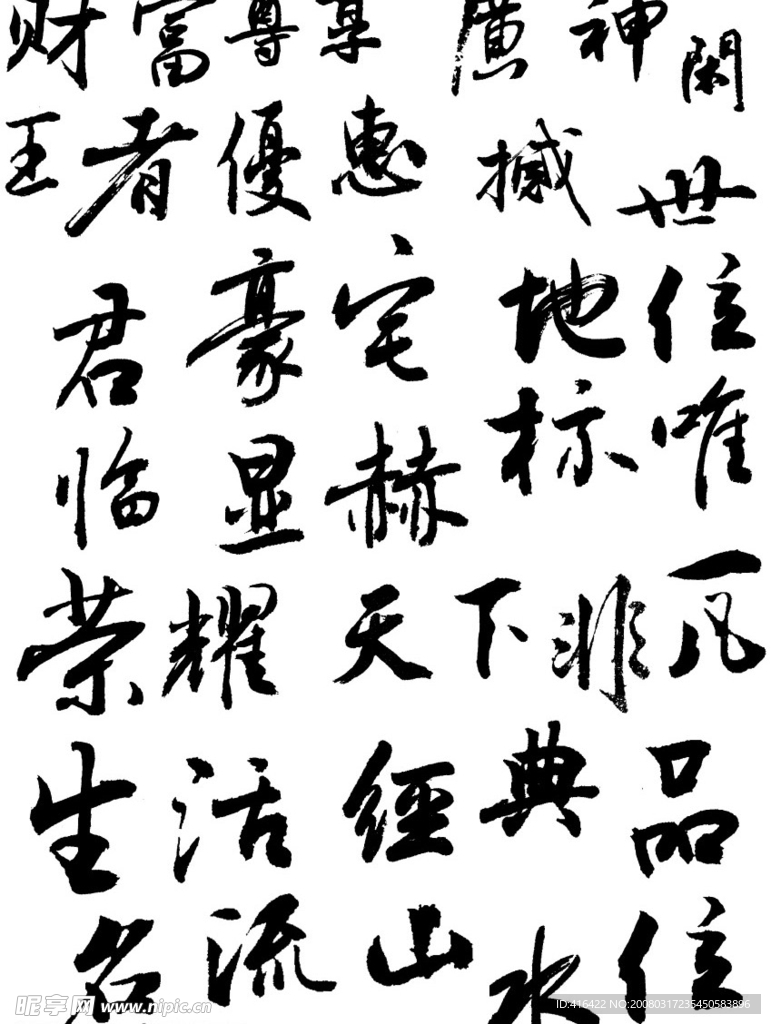 财富尊享廣神閑
王者優惠撼世
君豪宅地位
临显赫標唯一
荣耀天下非凡
生活經典品位
名流山水
昵享网 www.nipic.cn
ID:416422 NO:20080317235450583896